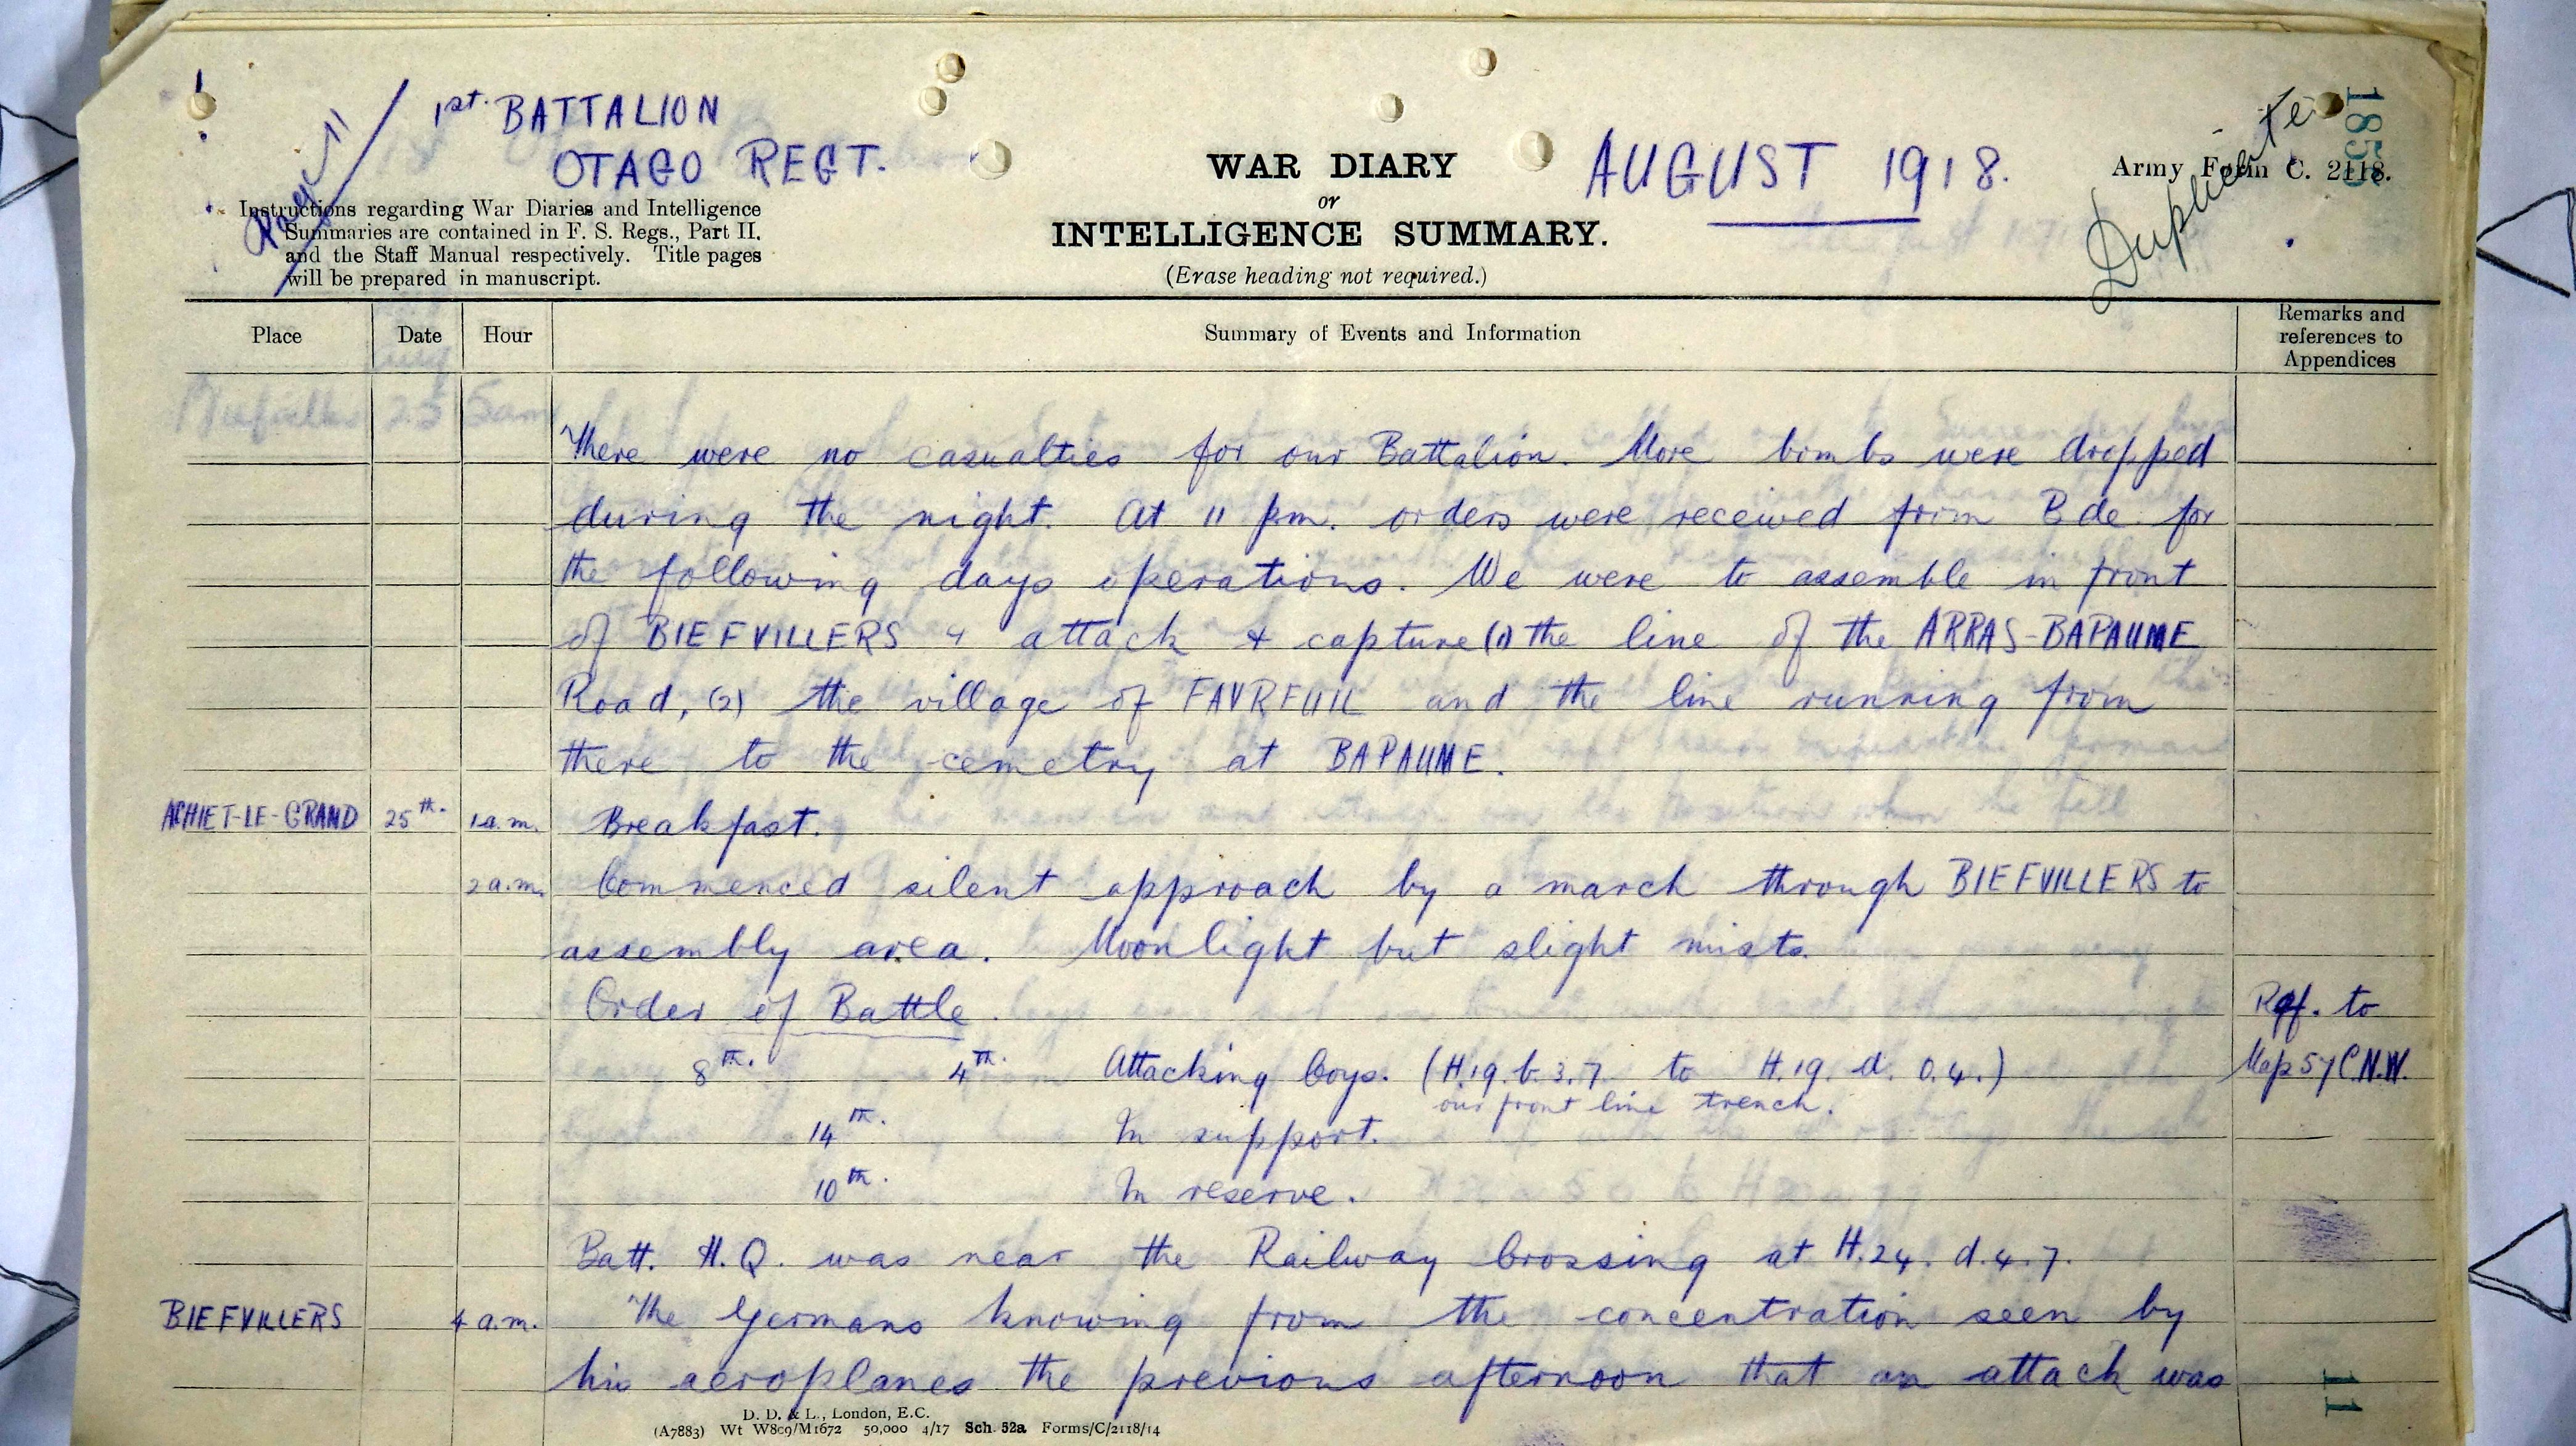 Page 11
1st. BATTALION
OTAGO REGT.
Instructions regarding War Diaries and Intelligence
Summaries are contained in F. S. Regs., Part II.
and the Staff Manual respectively. Title pages
will be prepared in manuscript.
WAR DIARY
or
INTELLIGENCE SUMMARY.
(Erase heading not required.)
AUGUST 1918.
Army Form C. 2118.
Duplicate
Place Date Hour Summary of Events and Information Remarks and references to Appendices
There were no casualties for our Battalion. More bombs were dropped
during the night. At 11 pm. orders were received from Bde. for
the following days operations. We were to assemble in front
of BIEFVILLERS & attack & capture (1) the line of the ARRAS-BAPAUME
Road, (2) the village of FAVREUIL and the line running from
there to the cemetry at BAPAUME.
ACHIET-LE-GRAND 25th. 1 a.m. Breakfast.
2 a.m. Commenced silent approach by a march through BIEFVILLERS to
assembly area. Moonlight but slight mists.
Order of Battle. Ref. to
8th. 4th. Attacking Coys. (H.19.b.3.7 to H.19.d.0.4.) Map 57C N.W.
our front line trench.
14th. In support.
10th. In reserve.
Batt. H.Q. was near the Railway Crossing at H.24.d.4.7.
BIEFVILLERS 4 a.m. The Germans knowing from the concentration seen by
his aeroplanes the previous afternoon that an attack was
D. D. & L., London, E.C.
(A7883) Wt W809/M1672 50,000 4/17 Sch. 52a Forms/C/2118/14
11